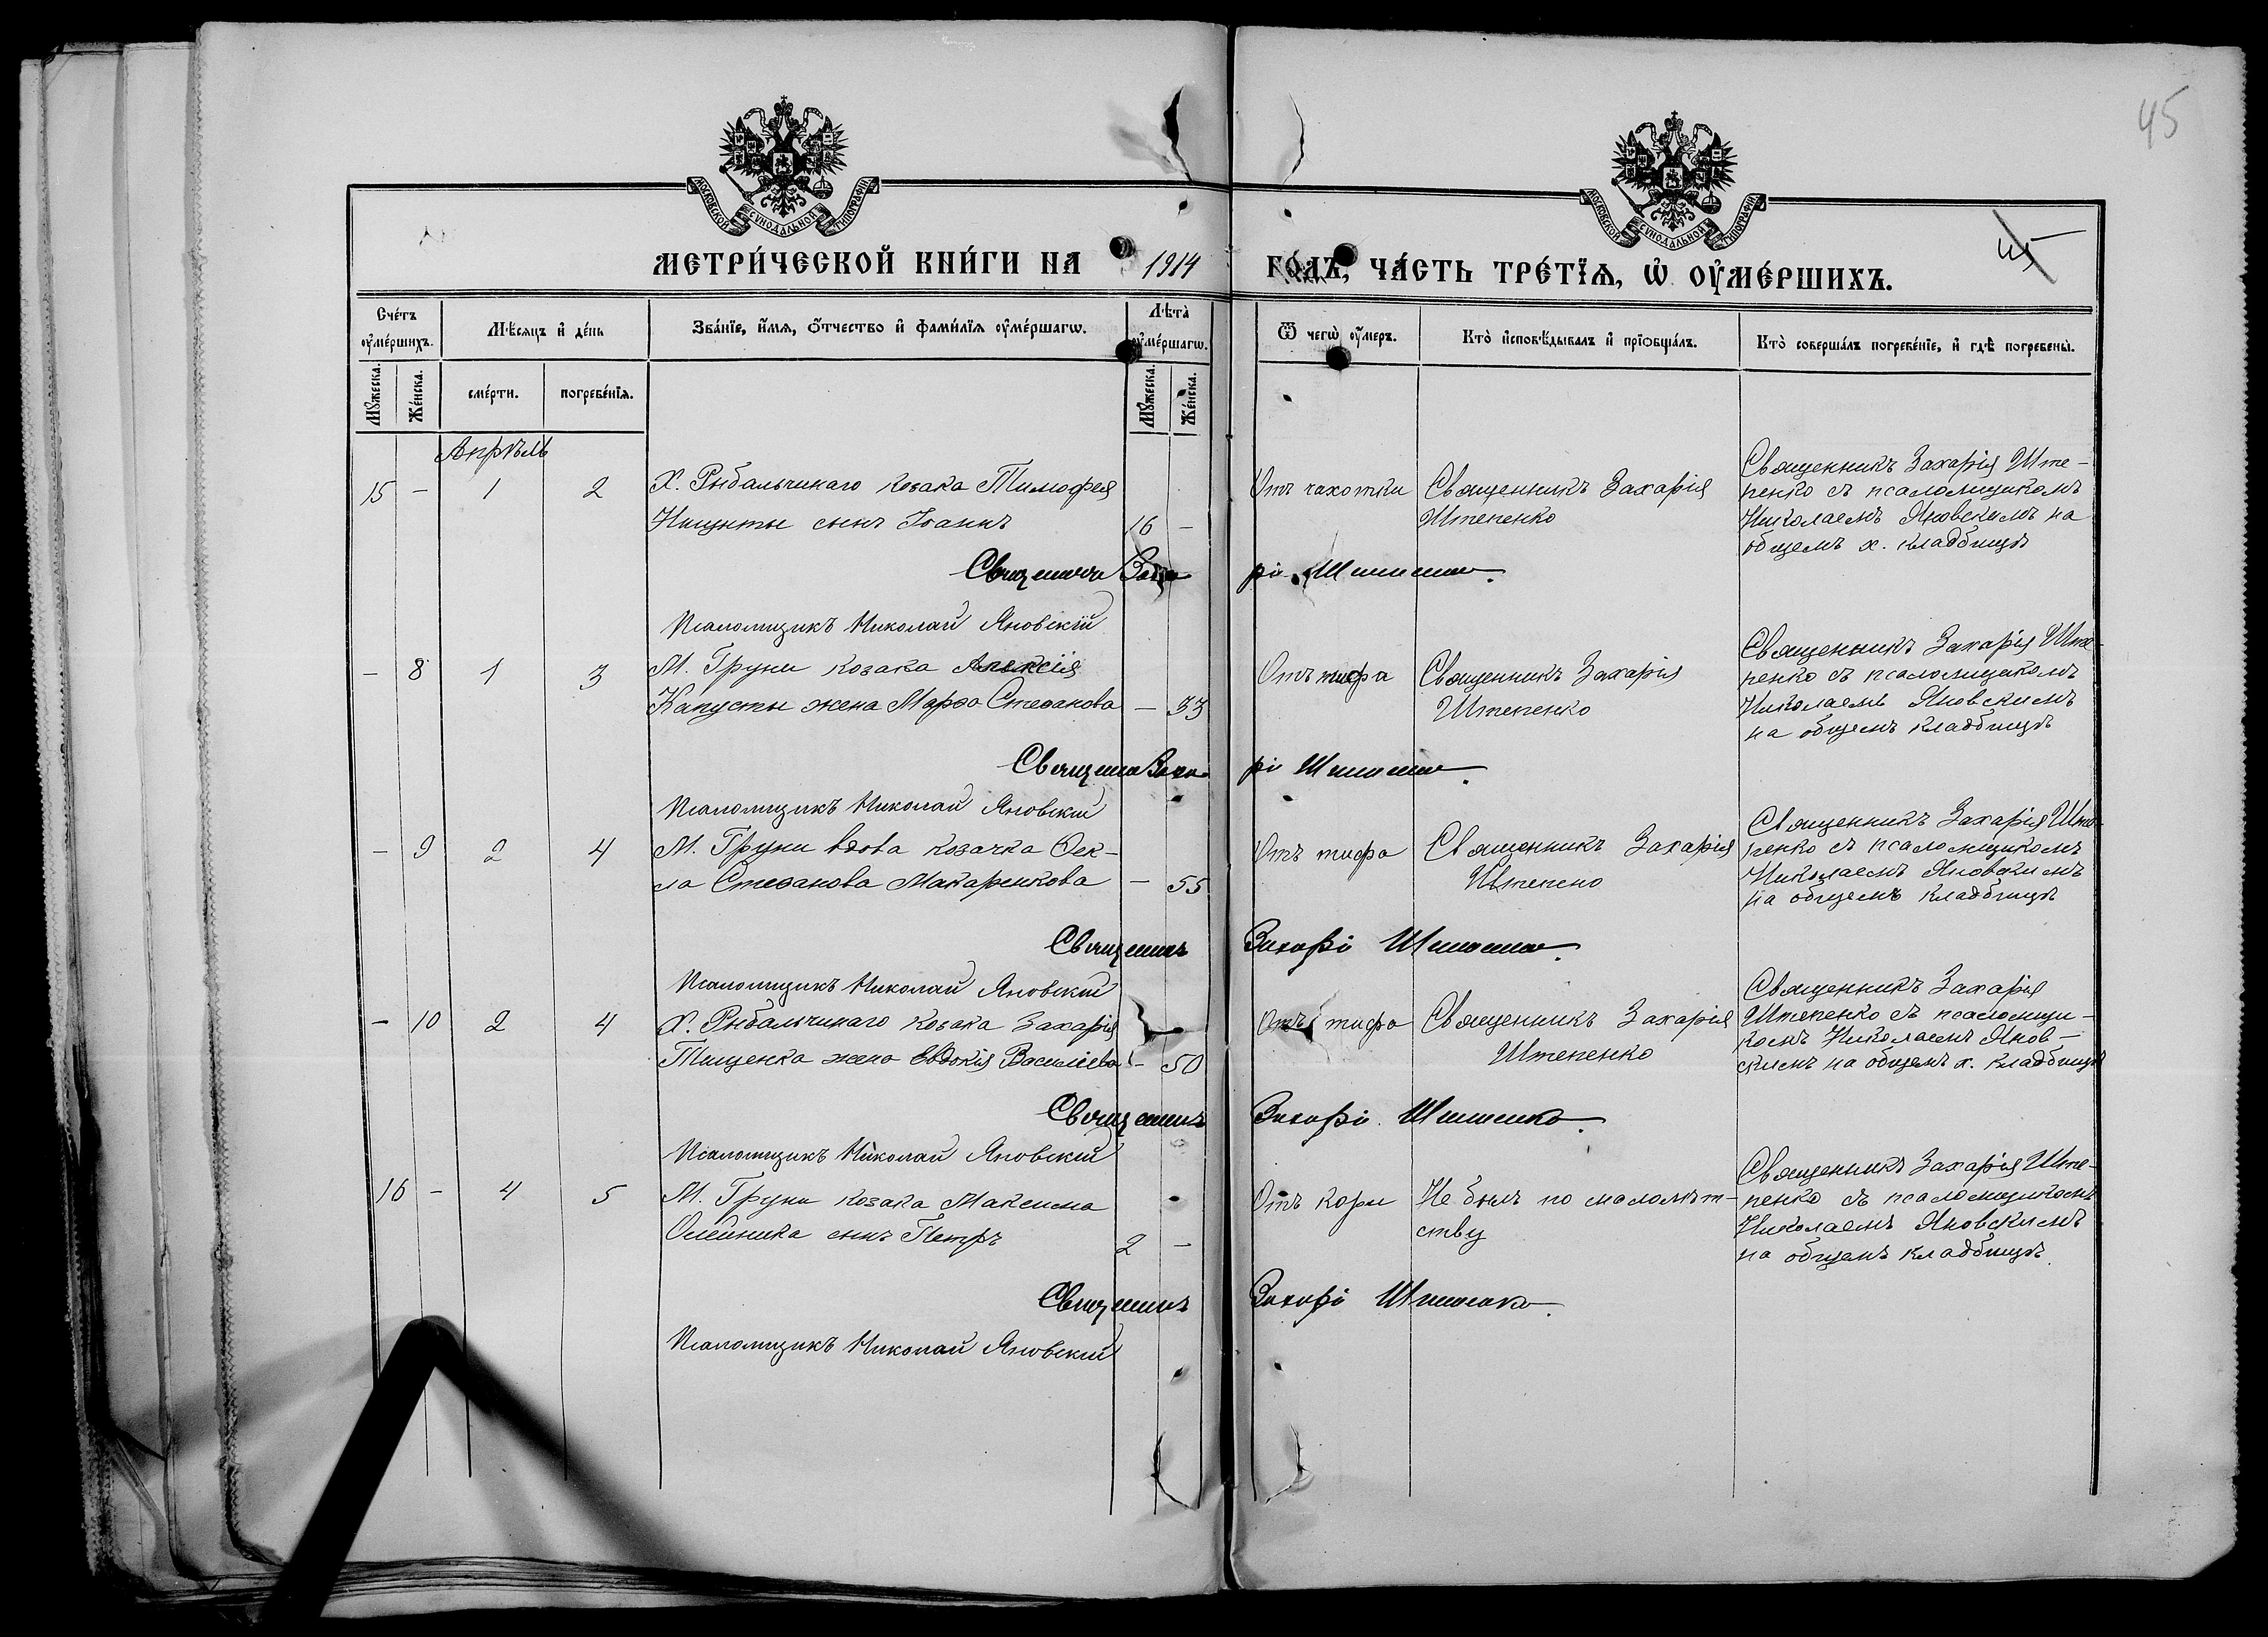 45
МОСКОВСКОЙ СѴНОДАЛЬНОЙ ТИПОГРАФІИ
МОСКОВСКОЙ СѴНОДАЛЬНОЙ ТИПОГРАФІИ
45
МЕТРИ́ЧЕСКОЙ КНИ́ГИ НА 1914 ГО́ДЪ, ЧА́СТЬ ТРЕ́ТЇѦ, Ѡ҆ ОУ҆МЕ́РШИХЪ.
Сче́тъ оу҆ме́ршихъ.
Мѣ́сяцъ и҆ де́нь
Зва́нїе, и҆́мѧ, ѻ҆́тчество и҆ фами́лїѧ оу҆ме́ршагѡ.
Лѣ́та̀ оу҆ме́ршагѡ.
Ѿ чегѡ̀ оу҆́меръ.
Кто̀ и҆сповѣ́дывалъ и҆ прїобща́лъ.
Кто̀ соверша́лъ погребе́нїе, и҆ гдѣ̀ погребены̀.
Мꙋ́жеска.
Же́нска.
сме́рти.
погребе́нїѧ.
Мꙋ́жеска.
Же́нска.
Апрѣль
15 - 1 2
Х. Рыбальчинаго козака Тимофея
сынъ Іоаннъ 16 -
Отъ чахотки
Священникъ Захарія
Штепенко
Священникъ Захарія Ште-
пенко съ псаломщикомъ
Николаемъ Яновскимъ на
общемъ х. кладбищѣ
Псаломщикъ Николай Яновскій
- 8 1 3
М. Груни козака Алексія
Капусты жена Марѳа Стефанова - 33
Отъ тифа
Священникъ Захарія
Штепенко
Священникъ Захарія Ште-
пенко съ псаломщикомъ
Николаемъ Яновскимъ
на общемъ кладбищѣ
Псаломщикъ Николай Яновскій
- 9 2 4
М. Груни вдова козачка Ѳек-
ла Стефанова Макаренкова - 55
Отъ тифа
Священникъ Захарія
Штепено
Священникъ Захарія Ште-
пенко съ псаломщикомъ
Николаемъ Яновскимъ
на общемъ кладбищѣ
Священникъ Захарія Штепенко.
Псаломщикъ Николай Яновскій
- 10 2 4
Х. Рыбальчинаго козака Захарія
Тищенка жена Евдокія Василіева - 50
Отъ тифа
Священникъ Захарія
Штепенко
Священникъ Захарія
Штепенко съ псаломщи-
комъ Николаемъ Янов-
скимъ на общемъ х. кладбищѣ
Священникъ Захарія Штепенко.
Псаломщикъ Николай Яновскій
16 - 4 5
М. Груни козака Максима
Олейника сынъ Петръ 2 -
Отъ кори
Не былъ по малолѣт-
ству
Священникъ Захарія Ште-
пенко съ псаломщикомъ
Николаемъ Яновскимъ
на общемъ кладбищѣ.
Священникъ Захарія Штепенко.
Псаломщикъ Николай Яновскій